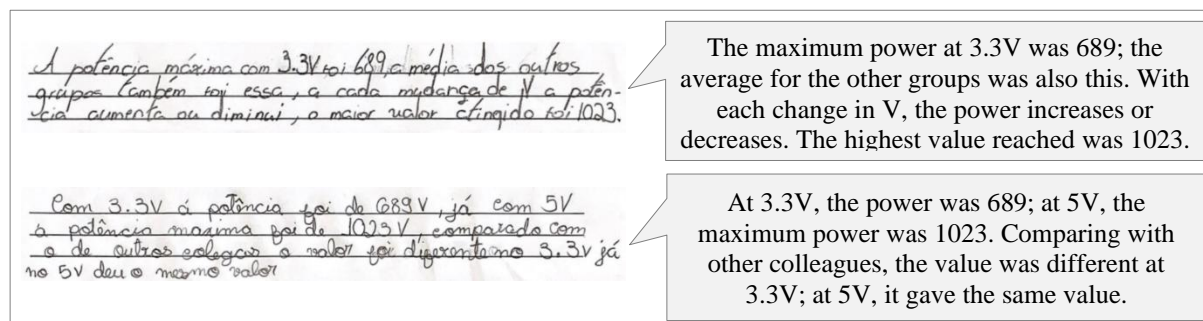 A potência máxima com 3.3V foi 689, a média dos outros
grupos também foi essa, a cada mudança de V a potên-
cia aumenta ou diminui, o maior valor atingido foi 1023.
The maximum power at 3.3V was 689; the
average for the other groups was also this. With
each change in V, the power increases or
decreases. The highest value reached was 1023.
Com 3.3V á potência foi de 689V, já com 5V
a potência maxima foi de 1023V, comparado com
o de outros colegas o valor foi diferente no 3.3v já
no 5V deu o mesmo valor
At 3.3V, the power was 689; at 5V, the
maximum power was 1023. Comparing with
other colleagues, the value was different at
3.3V; at 5V, it gave the same value.